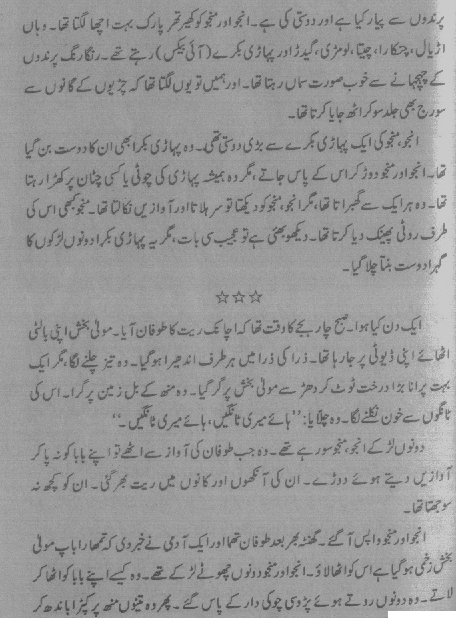 پرندوں سے پیار کیا ہے اور دوستی کی ہے۔ انجو اور منجو کو کھیر تھر پارک بہت اچھا لگتا تھا۔ وہاں
اڑیال، چنکارا، چیتا، لومڑی، گیدڑ اور پہاڑی بکرے (آئی بیکس) رہتے تھے۔ رنگا رنگ پرندوں
کے چہچہانے سے خوب صورت سماں رہتا تھا۔ اور ہمیں تو یوں لگتا تھا کہ چڑیوں کے گانوں سے
سورج بھی جلد سو کر اٹھ جایا کرتا تھا۔
انجو، منجو کی ایک پہاڑی بکرے سے بڑی دوستی تھی۔ وہ پہاڑی بکرا بھی ان کا دوست بن گیا
تھا۔ انجو اور منجو دوڑ کر اس کے پاس جاتے، مگر وہ ہمیشہ پہاڑی کی چوٹی یا کسی چٹان پر کھڑا رہتا
تھا۔ وہ ہر ایک سے گھبراتا تھا، مگر انجو، منجو کو دیکھتا تو سر ہلاتا اور آوازیں نکالتا تھا۔ منجو کبھی اس کی
طرف روٹی پھینک دیا کرتا تھا۔ دیکھو بھئی ہے تو عجیب سی بات، مگر یہ پہاڑی بکرا دونوں لڑکوں کا
گہرا دوست بنتا چلا گیا۔
☆☆☆
ایک دن کیا ہوا۔ صبح چار بجے کا وقت تھا کہ اچانک ریت کا طوفان آیا۔ مولیٰ بخش اپنی پالٹی
اٹھائے اپنی ڈیوٹی پر جا رہا تھا۔ ذرا کی ذرا میں ہر طرف اندھیرا ہو گیا۔ وہ تیز چلنے لگا، مگر ایک
بہت پرانا بڑا درخت ٹوٹ کر دھڑ سے مولیٰ بخش پر گر گیا۔ وہ منھ کے بل زمین پر گرا۔ اس کی
ٹانگوں سے خون نکلنے لگا۔ وہ چلایا: ''ہائے میری ٹانگیں، ہائے میری ٹانگیں۔''
دونوں لڑکے انجو، منجو سو رہے تھے۔ وہ جب طوفان کی آواز سے اٹھے تو اپنے بابا کو نہ پا کر
آوازیں دیتے ہوئے دوڑے۔ ان کی آنکھوں اور کانوں میں ریت بھر گئی۔ ان کو کچھ نہ
سوجھتا تھا۔
انجو اور منجو واپس آ گئے۔ گھنٹہ بھر بعد طوفان تھما اور ایک آدمی نے خبر دی کہ تمھارا باپ مولیٰ
بخش زخمی ہو گیا ہے اس کو اٹھا لاؤ۔ انجو اور منجو دونوں چھوٹے لڑکے تھے۔ وہ کیسے اپنے بابا کو اٹھا کر
لاتے۔ وہ دونوں روتے ہوئے پڑوسی چوکی دار کے پاس گئے۔ پھر وہ تینوں منھ پر کپڑا باندھ کر